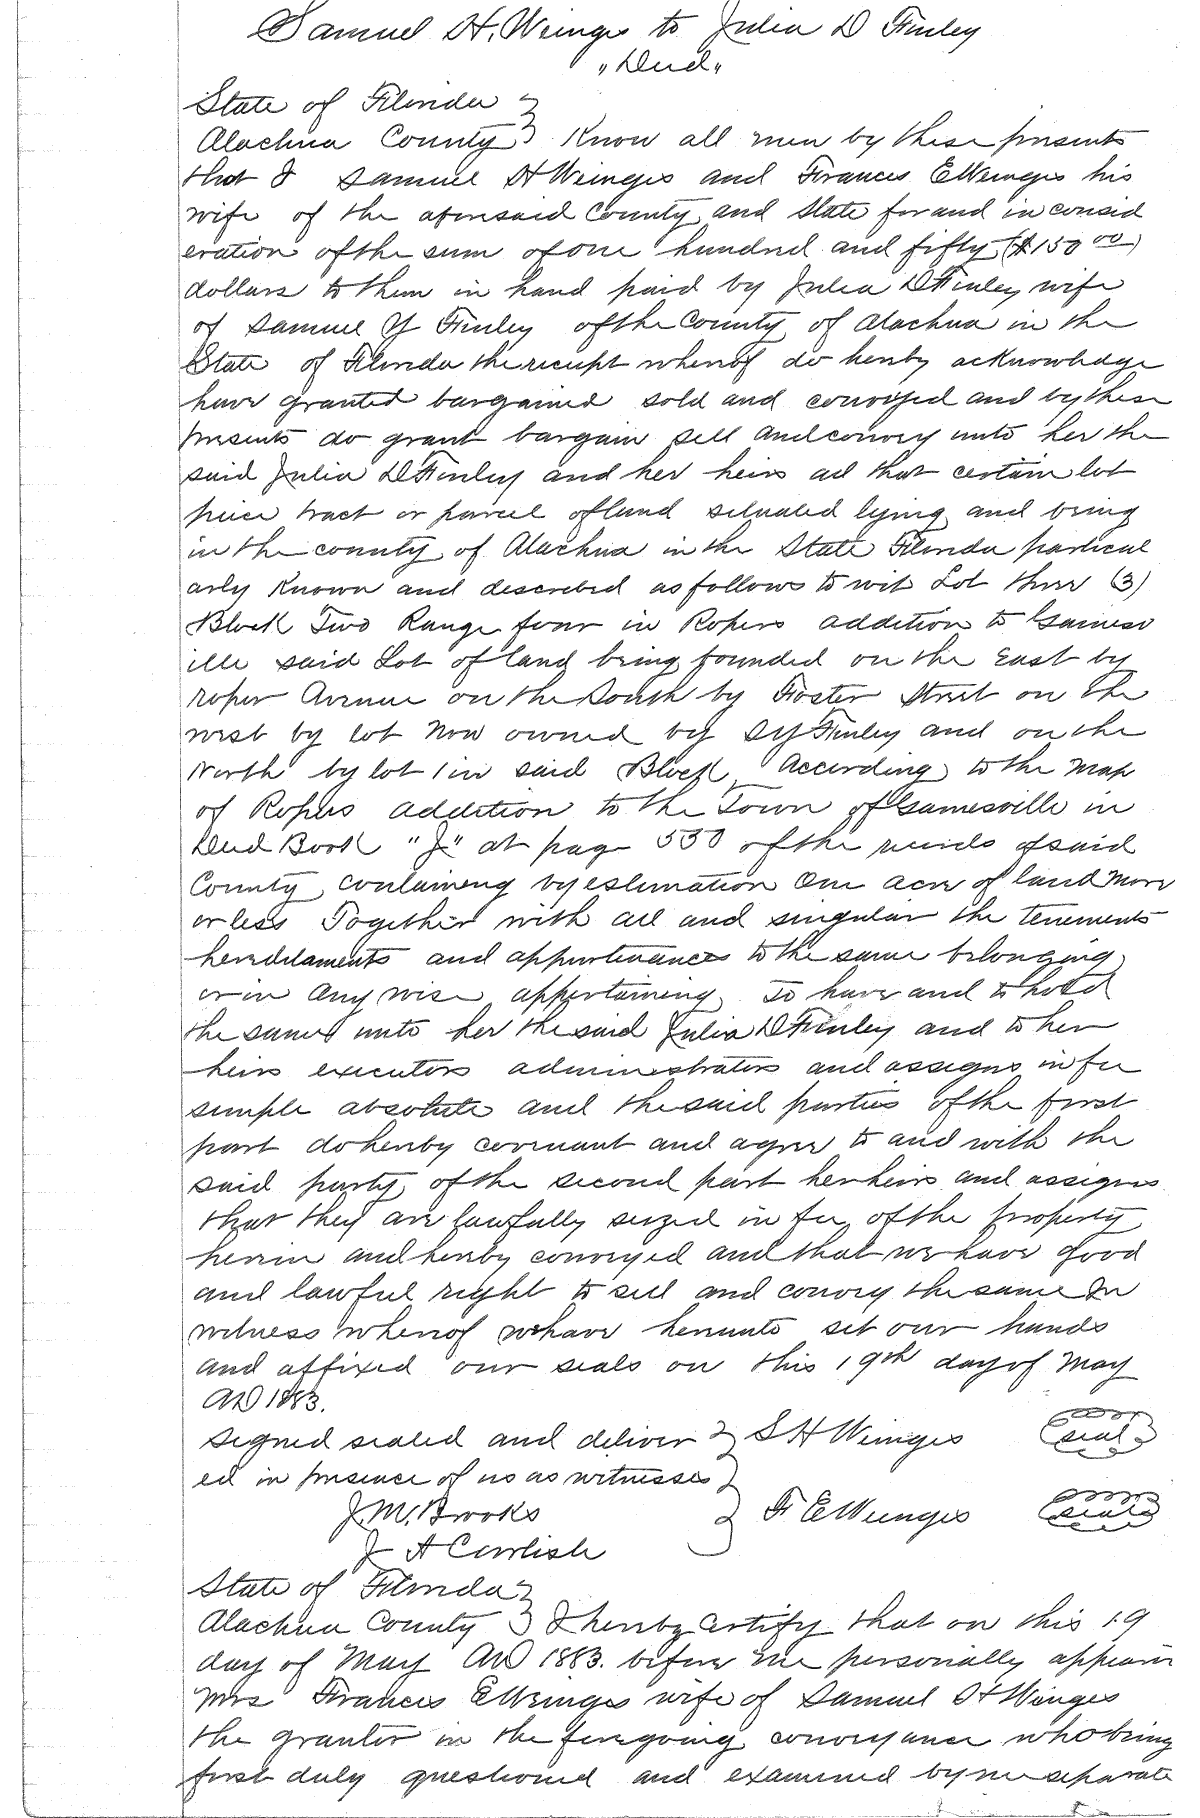 Samuel H. Weinges to Julia D Finley
"Deed"
State of Florida
Alachua County Know all men by these presents
that I Samuel H Weinges and Frances E Weinges his
wife of the aforesaid County and State for and in consid
eration of the sum of one hundred and fifty ($150 00)
dollars to them in hand paid by Julia D Finley wife
of Samuel Y Finley of the County of Alachua in the
State of Florida the receipt whereof do hereby acknowledge
have granted bargained sold and conveyed and by these
presents do grant bargain sell and convey unto her the
said Julia D Finley and her heirs all that certain lot
piece tract or parcel of land situated lying and being
in the county of Alachua in the State Florida particul
arly Known and described as follows to wit Lot three (3)
Block Two Range four in Ropers addition to Gainesv
ille said Lot of land being bounded on the East by
roper Avenue on the South by Foster Street on the
west by lot now owned by S Y Finley and on the
North by lot 1 in said Block According to the map
of Ropers addition to the Town of Gainesville in
Deed Book "J" at page 530 of the records of said
County containing by estimation One acre of land more
or less Together with all and singular the tenements
hereditaments and appurtenances to the same belonging
or in any wise appertaining To have and to hold
the same unto her the said Julia D Finley and to her
heirs executors administrators and assigns in fee
simple absolute and the said parties of the first
part do hereby covenant and agree to and with the
said party of the second part her heirs and assigns
that they are lawfully seized in fee of the property
herein and hereby conveyed and that we have good
and lawful right to sell and convey the same In
witness whereof we have hereunto set our hands
and affixed our seals on this 19th day of May
AD 1883.
Signed sealed and deliver S H Weinges seal
ed in presence of us as witnesses
J. M. Brooks F E Weinges seal
J A Carlisle
State of Florida
Alachua County I hereby certify that on this 19
day of May AD 1883. before me personally appear
Mrs Frances E Weinges wife of Samuel H Winges
the grantor in the foregoing conveyance who being
first duly questioned and examined by me separate